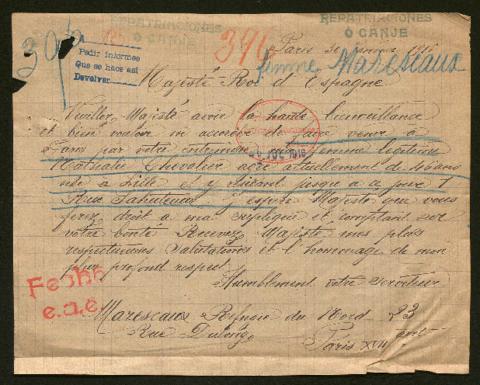 REPATRIACIONES
O CANJE
REPATRIACIONES
O CANJE
A
Pedir informes
Que se hace así
Devolver
390
391
Paris 30 1916
femme Marescaux
Majesté Roi d'Espagne
Veuillez Majesté avoir la haute bienveillance
et bien vouloir m'accorder de faire venir à
Paris par votre entremise ma femme légitime
Chevalier actuellement de 46 ans
à Lille et y jusque à ce jour 7
Rue j'espère Majesté que vous
ferez droit à ma suplique et comptant sur
votre bonté Recevez Majesté mes plus
respectueuses salutations et l'hommage de mon
plus profond respect
Humblement votre serviteur
Fecho
e.a.e.
Marescaux Réfugié du Nord 23
Rue Dulong
Paris XVII